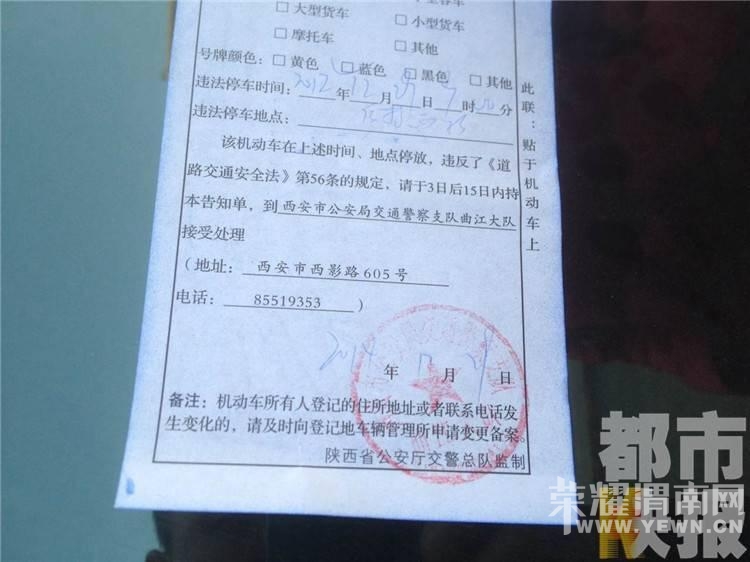 □大型货车 □小型货车
□摩托车 □其他
号牌颜色：□黄色 □蓝色 □黑色 □其他
违法停车时间：年12月29日时分
违法停车地点：
该机动车在上述时间、地点停放，违反了《道
路交通安全法》第56条的规定，请于3日后15日内持
本告知单，到西安市公安局交通警察支队曲江大队
接受处理
（地址：西安市西影路605号
电话：85519353）
2014年12月29日
备注：机动车所有人登记的住所地址或者联系电话发
生变化的，请及时向登记地车辆管理所申请变更备案。
陕西省公安厅交警总队监制
此联：贴于机动车上
都市
快报
荣耀渭南网
WWW.YEWN.CN